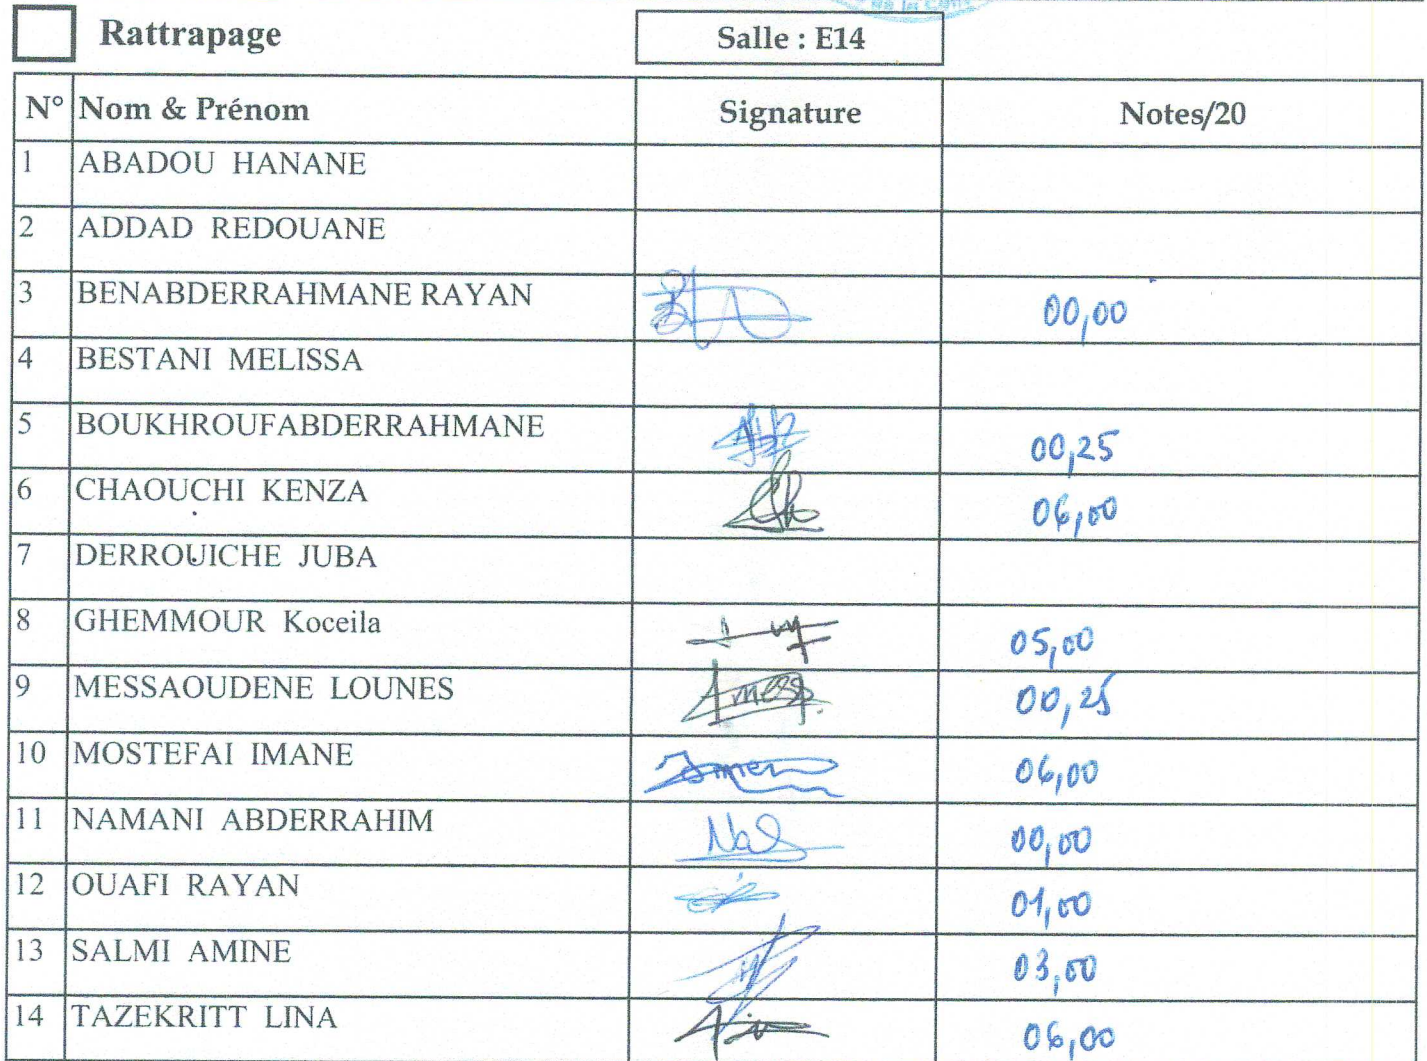 de la
Rattrapage
Salle : E14
N° Nom & Prénom Signature Notes/20
1 ABADOU HANANE
2 ADDAD REDOUANE
3 BENABDERRAHMANE RAYAN 00,00
4 BESTANI MELISSA
5 BOUKHROUFABDERRAHMANE 00,25
6 CHAOUCHI KENZA 06,00
7 DERROUICHE JUBA
8 GHEMMOUR Koceila 05,00
9 MESSAOUDENE LOUNES 00,25
10 MOSTEFAI IMANE 06,00
11 NAMANI ABDERRAHIM 00,00
12 OUAFI RAYAN 01,00
13 SALMI AMINE 03,00
14 TAZEKRITT LINA 06,00